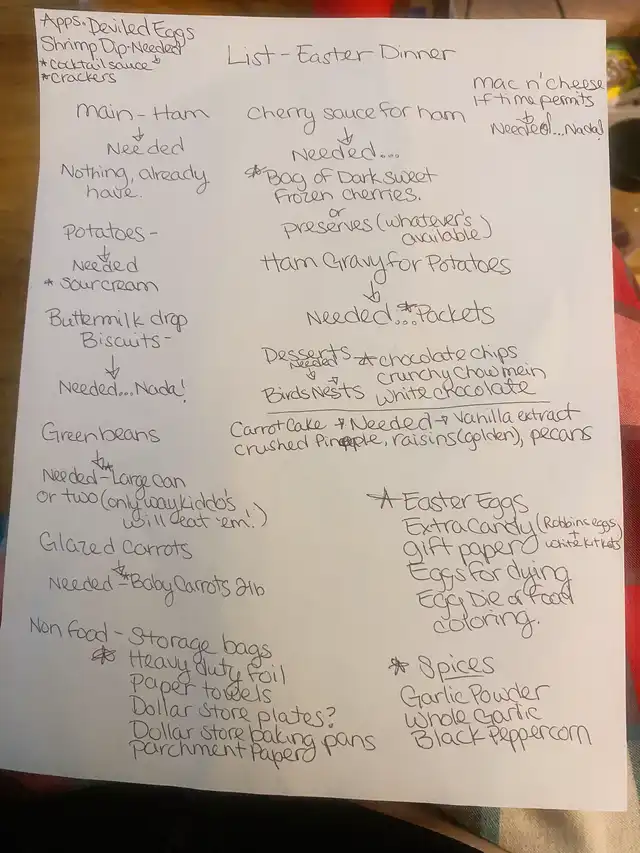 Apps. Deviled Eggs
Shrimp Dip. Needed
*cocktail sauce
*crackers
List - Easter Dinner
mac n' cheese
if time permits
Needed...Nada!
main - Ham
Needed
Nothing, already
have.
Potatoes -
Needed
* sour cream
Buttermilk drop
Biscuits -
Needed...Nada!
Green beans
Needed - *Large can
or two (only way kiddo's
will eat 'em!)
Glazed Carrots
Needed - *Baby Carrots 2lb
cherry sauce for ham
Needed....
*Bag of Dark sweet
frozen cherries.
or
preserves (whatever's
available)
Ham Gravy for Potatoes
Needed...*Packets
Desserts * chocolate chips
Needed crunchy chowmein
Birds Nests white chocolate
Carrot Cake → Needed → Vanilla extract
crushed Pineapple, raisins (golden), pecans
* Easter Eggs
Extra Candy (Robbins eggs
+
white kitkats)
gift paper
Eggs for dying
Egg Die or Food
coloring.
Non food - Storage bags
* Heavy duty foil
Paper towels
Dollar store plates?
Dollar store baking pans
Parchment Paper
* Spices
Garlic Powder
Whole Garlic
Black Peppercorn